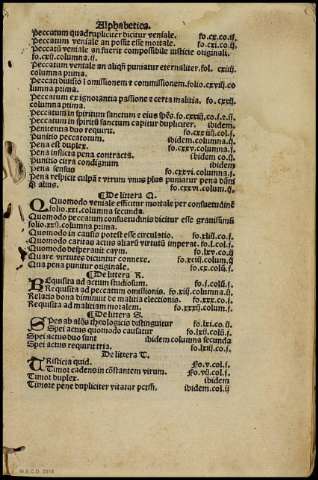 Alphabetica.
Peccatum quadrupliciter dicitur veniale. fo.cx.co.ij.
Peccatum veniale an possit esse mortale. fo.cxi.co.ij.
Peccatū veniale an fuerit compossibile iusticie originali.
fo.cxij.columna.ij.
Peccatum veniale an aliqñ puniatur eternaliter. fol. cxiij.
columna prima.
Peccati diuisio ĩ omissionem e commissionem. folio.cxviij.co
lumna prima.
Peccatum ex ignorantia passione e certa malitia. fo. cxxj.
columna prima.
Peccatum in spiritum sanctum e eius spẽs. fo.cxxiij.co.j.e.ij
Peccatum in spiritū sanctum capitur dupliciter. ibidem
Penitentia duo requirit. fo.cxxiiij.col.j.
Punitio peccatorum. ibidem.columna.ij.
Pena est duplex. fo.cxxv.columna.j.
Pena iusticia pena contracta. ibidem co.ij.
Punitio citra condignum ibidem
Pena sensus fo.cxxvi.columna.j.
Pena respicit culpā e virum vnus plus puniatur pena dāni
q̃ alius. fo.cxxvi.colum.ij.
De littera Q.
Quomodo veniale efficitur mortale per consuetudinē
folio.xxi.columna secunda.
Quomodo peccatum consuetudinis dicitur esse grauissimū
folio.xxij.columna prima.
Quomodo in causis potest esse circulatio. fo.xliij.co.j.
Quomodo caritas actus aliarū virtutū imperat. fo.l.col.j.
Quomodo desperauit caym. fo.lxv.co.ij
Quare virtutes dicuntur connexe. fo.xciij.colum.ij.
Qua pena punitur originale. fo.cx.colū.j.
De littera R.
Requisita ad actum studiosum. fo.j.colū.j.
Requisita ad peccatum omissionis. fo.xiij.columna.ij.
Relatio bona diminuit de malitia electionis. fo.xxx.co.j.
Requisita ad malitiam moralem. fo.xxx.co.j.
De littera S.
Spes ab alijs theologicis distinguitur fo.lxi.co.ij.
Spei actus quomodo causatur fo.lxij.colū.j.
Spei actus duo sunt ibidem columna secunda
Spei actus requirit tria. fo.lxiij.co.j.
De littera T.
Tristicia quid. Fo.v.col.j.
Timor cadens in cōstantem virum. Fo.vij.col.j.
Timor duplex. ibidem
Timore pene dupliciter vitatur pctm̃. ibidem col.ij